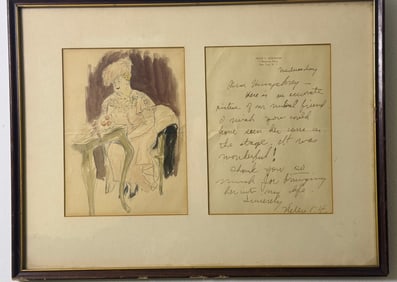 Wednesday
Dear Humphrey —
Here is an accurate
picture of our mutual friend
I wish you could
have seen her here on
the stage, it was
wonderful!
Thank you so
much for bringing
her into my life.
Sincerely
Helen